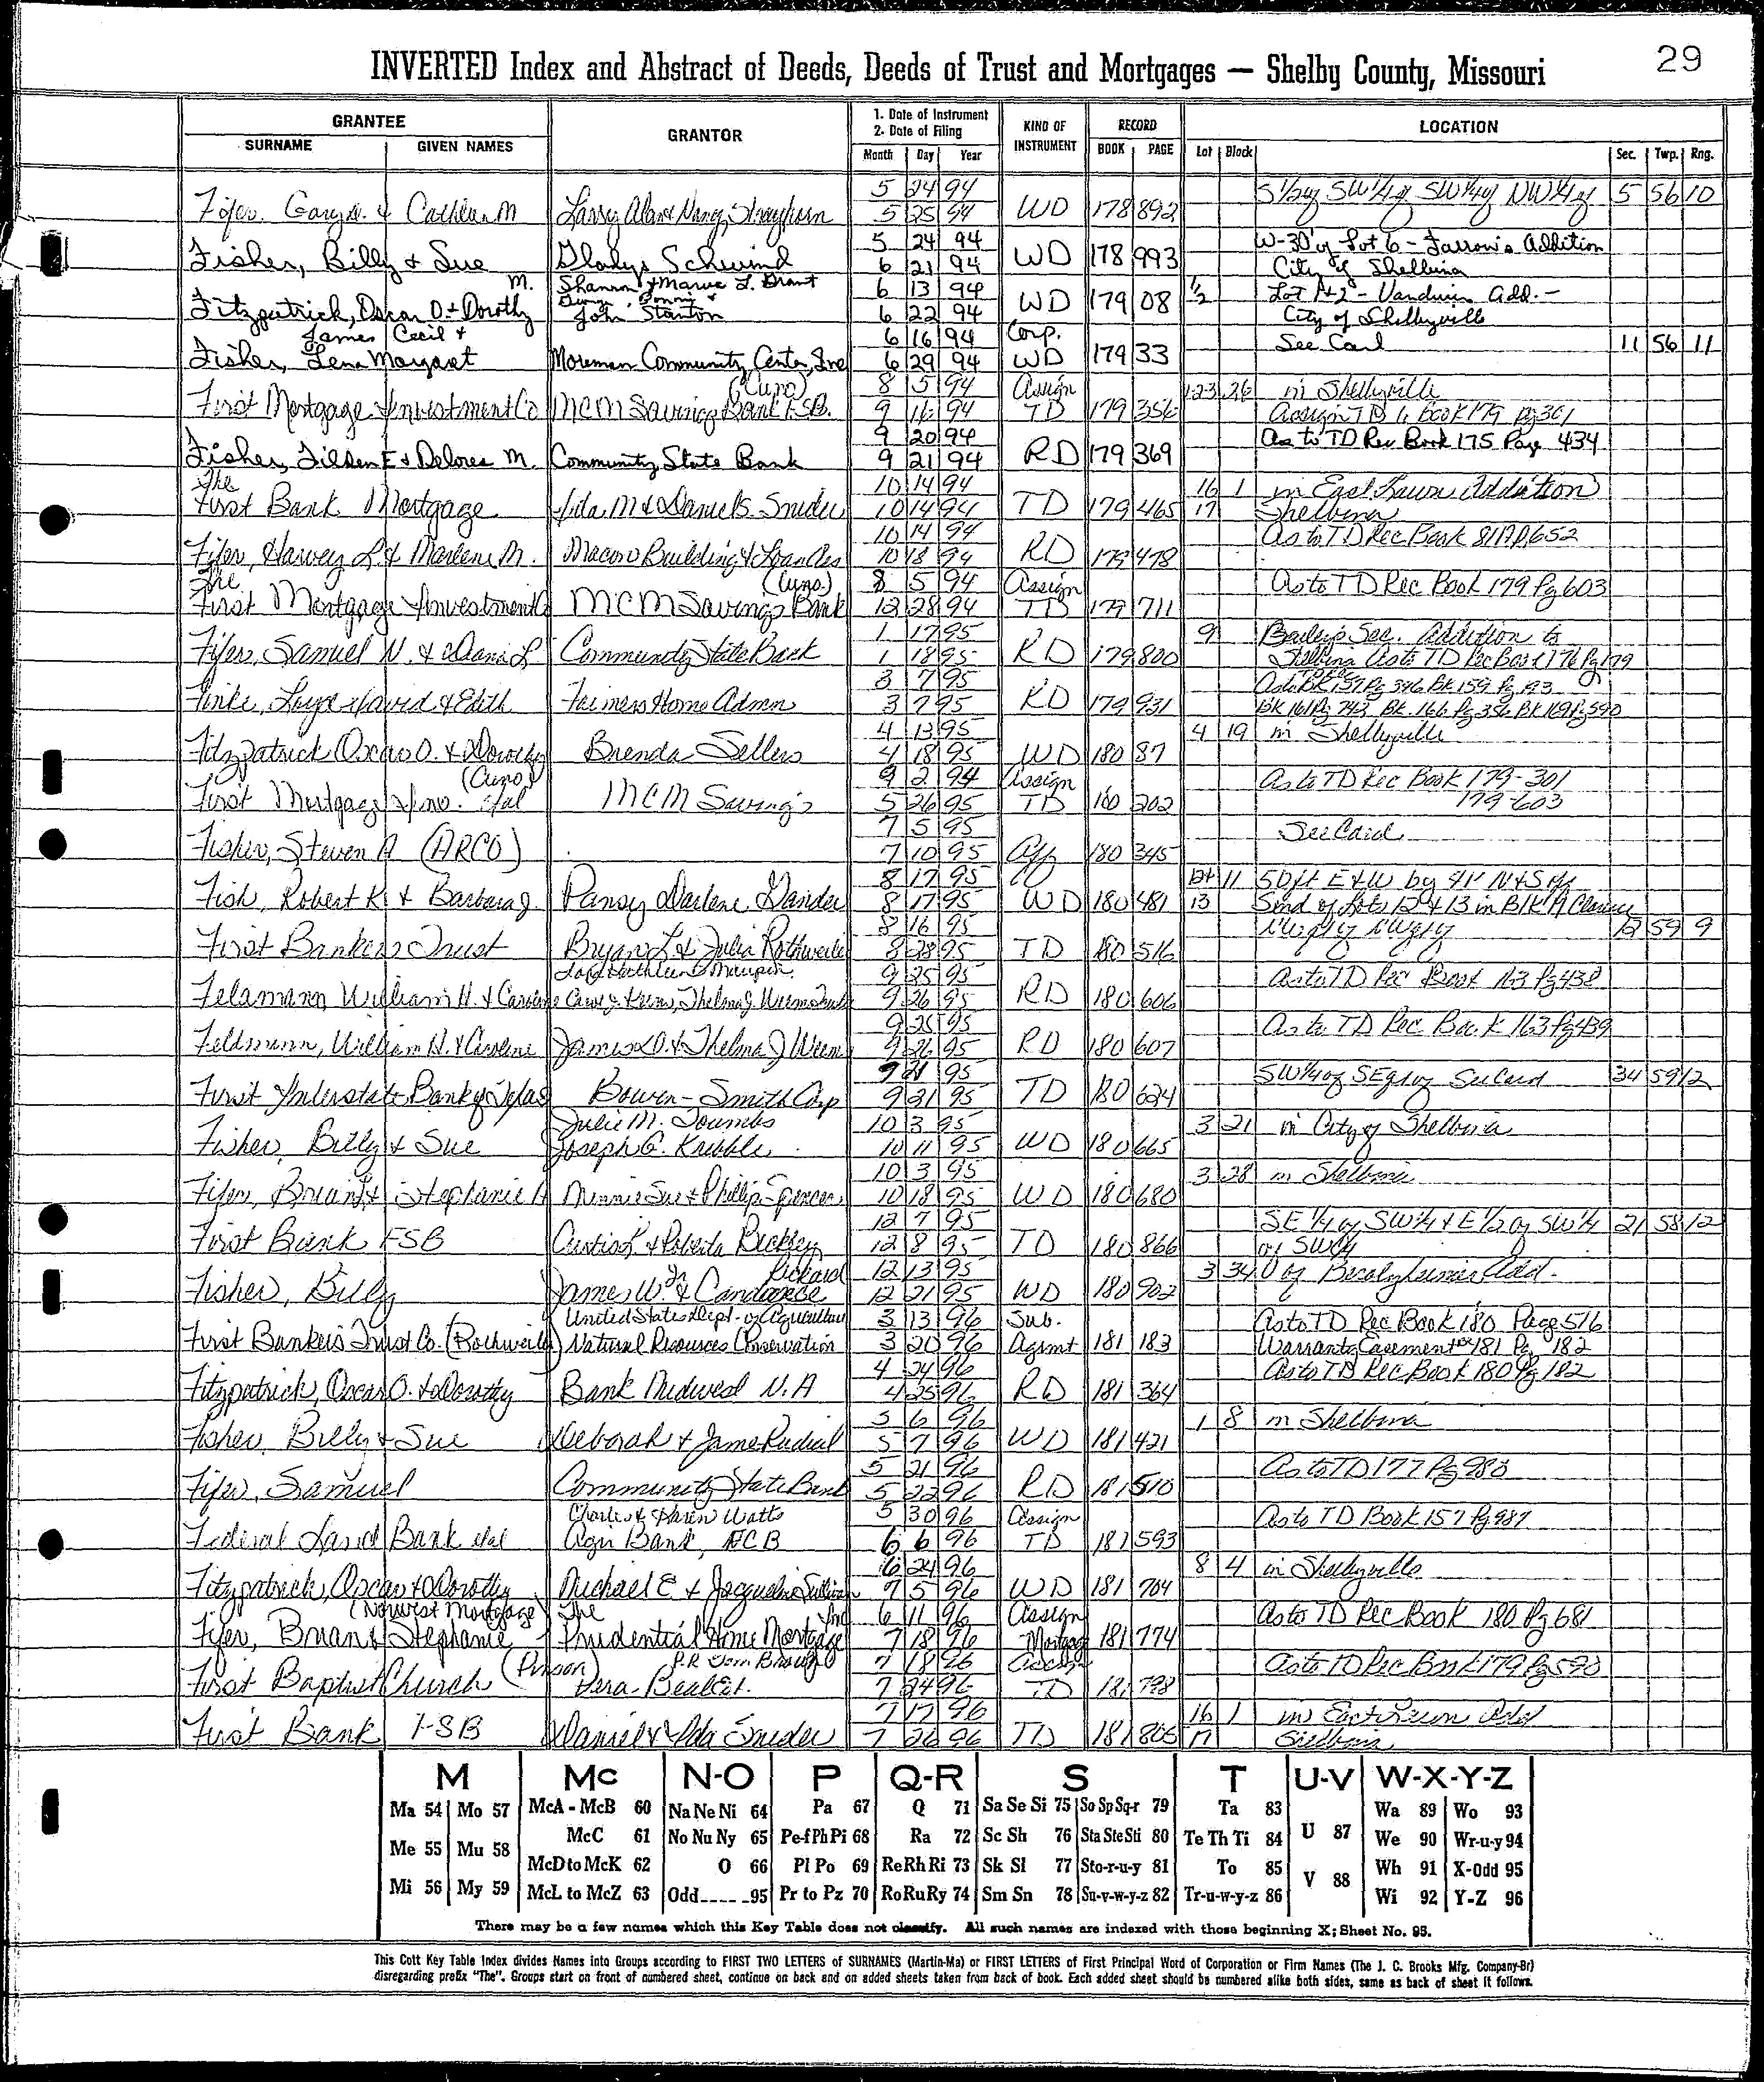 29
INVERTED Index and Abstract of Deeds, Deeds of Trust and Mortgages — Shelby County, Missouri
GRANTEE
SURNAME GIVEN NAMES
GRANTOR
1. Date of Instrument
2. Date of Filing
Month Day Year
KIND OF INSTRUMENT
RECORD
BOOK PAGE
LOCATION
Lot Block Sec. Twp. Rng.
5 24 94 S 1/2 of SW 1/4 of SW 1/4 of NW 1/4 of 5 56 10
Fifer, & Larry 5 25 94 WD 178 892
5 24 94 W-30' of Lot 6 - Farron's Addition
Fisher, Billy & Sue Gladys Schwind 6 21 94 WD 178 993 City of Shelbina
M. Shannon & L. Grant 6 13 94 1/2 Lot 1+2 - Add. -
Fitzpatrick, Oscar O. & Dorothy John Stanton 6 22 94 WD 179 08 City of Shelbyville
James Cecil & 6 16 94 Corp. See Card 11 56 11
Fisher, Lena Margaret Moreman Community Center, Inc 6 29 94 WD 179 33
(Cuno) 8 5 94 Assign 1-2-3 26 in Shelbyville
First Mortgage & Investment Co MCM Savings Bank F.S.B. 9 16 94 TD 179 356 Assign TD in Book 179 Pg 301
9 20 94 As to TD Rec Book 175 Page 434
Fisher, Tilden E & Delores M. Community State Bank 9 21 94 RD 179 369
The 10 14 94 16 1 in East Lawn Addition
First Bank Mortgage Lida M & Daniel S. Snider 10 14 94 TD 179 465 17 Shelbina
10 14 94 As to TD Rec Book 
Fifer, Harvey L. & Marlene M. Macon Building & Loan Ass 10 18 94 RD 179 478
The (Cuno) 8 5 94 Assign As to TD Rec Book 179 Pg 603
First Mortgage & Investment MCM Savings Bank 12 28 94 TD 179 711
1 17 95 9 Bailey's Sec. Addition to
Fifer, Samuel N. & Diana L Community State Bank 1 18 95 RD 179 800 Shelbina As to TD Rec Book 176 Pg 179
3 7 95 Pg 346 Bk 159 Pg 193
Finke, David & Edith Farmers Home Admn 3 7 95 RD 179 931 Bk 161 Pg 743 Bk. 166 Pg 356 Bk 169 Pg 590
4 13 95 4 19 in Shelbyville
Fitzpatrick Oscar O. & Dorothy Brenda Sellers 4 18 95 WD 180 87
(Cuno) 9 2 94 Assign As to TD Rec Book 179-301
First Mortgage & Inv. etal MCM Savings 5 26 95 TD 180 202 179-603
7 5 95 See Card
Fisher, Steven A (ARCO) 7 10 95 Aff 180 345
8 17 95 11 50 ft E & W by 91' N & S off
Fish, Robert K & Barbara J. Pansy Darlene 8 17 95 WD 180 481 13 S end of Lots 12 & 13 in Blk 11 Clarence
8 16 95 12 59 9
First Bankers Trust Bryan L & Julia Rothweiler 8 28 95 TD 180 516
9 25 95 As to TD Rec Book 163 Pg 438
Feldmann, William H. & Caroline 9 26 95 RD 180 606
9 25 95 As to TD Rec Book 163 Pg 439
Feldmann, William H. & Caroline James O. & Thelma J 9 26 95 RD 180 607
9 21 95 SW 1/4 of SE 1/4 of See Card 34 59 12
First Interstate Bank of Texas Bowen-Smith Corp 9 21 95 TD 180 624
Julie M. Toombs 10 3 95 3 21 in City of Shelbina
Fisher, Billy & Sue Joseph G. Kribble 10 11 95 WD 180 665
10 3 95 3 28 in Shelbina
Fifer, Brian & Stephanie Minnie Sue & Phillip Spencer 10 18 95 WD 180 680
12 7 95 SE 1/4 of SW 1/4 & E 1/2 of SW 1/4 21 58 12
First Bank FSB Curtis L & Roberta Buckley 12 8 95 TD 180 866 of SW 1/4
Jr Pickard 12 13 95 3 34 Add.
Fisher, Billy James W. & Candance 12 21 95 WD 180 902
United States Dept. of Agriculture 3 13 96 Sub. As to TD Rec Book 180 Page 516
First Bankers Trust Co. (Rothweiler) Natural Resources Conservation 3 20 96 Agrmt 181 183 Warranty Easement Bk 181 Pg 182
4 24 96 As to TD Rec Book 180 Pg 182
Fitzpatrick, Oscar O. & Dorothy Bank Midwest N.A 4 25 96 RD 181 364
5 6 96 1 8 in Shelbina
Fisher, Billy & Sue Deborah & James 5 7 96 WD 181 421
5 21 96 As to TD 177 Pg 983
Fifer, Samuel Community State Bank 5 22 96 RD 181 510
Charles & Karen Watts 5 30 96 Assign As to TD Book 157 Pg 987
Federal Land Bank etal Agri Bank, FCB 6 6 96 TD 181 593
6 24 96 8 4 in Shelbyville
Fitzpatrick, Oscar & Dorothy Michael E & Jacqueline Sullivan 7 5 96 WD 181 704
(Norwest Mortgage) The Inc 6 11 96 Assign As to TD Rec Book 180 Pg 681
Fifer, Brian & Stephanie Prudential Home Mortgage 7 18 96 Mortgage 181 774
P.R 7 18 96 Assign As to TD Rec Book 179 Pg 590
First Baptist Church Vera 7 24 96 TD 181 798
7 17 96 16 1 in East Lawn Add
First Bank FSB Daniel & Lida Snider 7 26 96 TD 181 805 17 Shelbina
M Mc N-O P Q-R S T U-V W-X-Y-Z
Ma 54 Mo 57 McA - McB 60 Na Ne Ni 64 Pa 67 Q 71 Sa Se Si 75 So Sp Sq-r 79 Ta 83 Wa 89 Wo 93
Me 55 Mu 58 McC 61 No Nu Ny 65 Pe-f Ph Pi 68 Ra 72 Sc Sh 76 Sta Ste Sti 80 Te Th Ti 84 U 87 We 90 Wr-u-y 94
McD to McK 62 O 66 Pl Po 69 Re Rh Ri 73 Sk Sl 77 Sto-r-u-y 81 To 85 Wh 91 X-Odd 95
Mi 56 My 59 McL to McZ 63 Odd-----95 Pr to Pz 70 Ro Ru Ry 74 Sm Sn 78 Su-v-w-y-z 82 Tr-u-w-y-z 86 V 88 Wi 92 Y-Z 96
There may be a few names which this Key Table does not classify. All such names are indexed with those beginning X; Sheet No. 95.
This Cott Key Table Index divides Names into Groups according to FIRST TWO LETTERS of SURNAMES (Martin-Ma) or FIRST LETTERS of First Principal Word of Corporation or Firm Names (The J. C. Brooks Mfg. Company-Br)
disregarding prefix "The". Groups start on front of numbered sheet, continue on back and on added sheets taken from back of book. Each added sheet should be numbered alike both sides, same as back of sheet it follows.